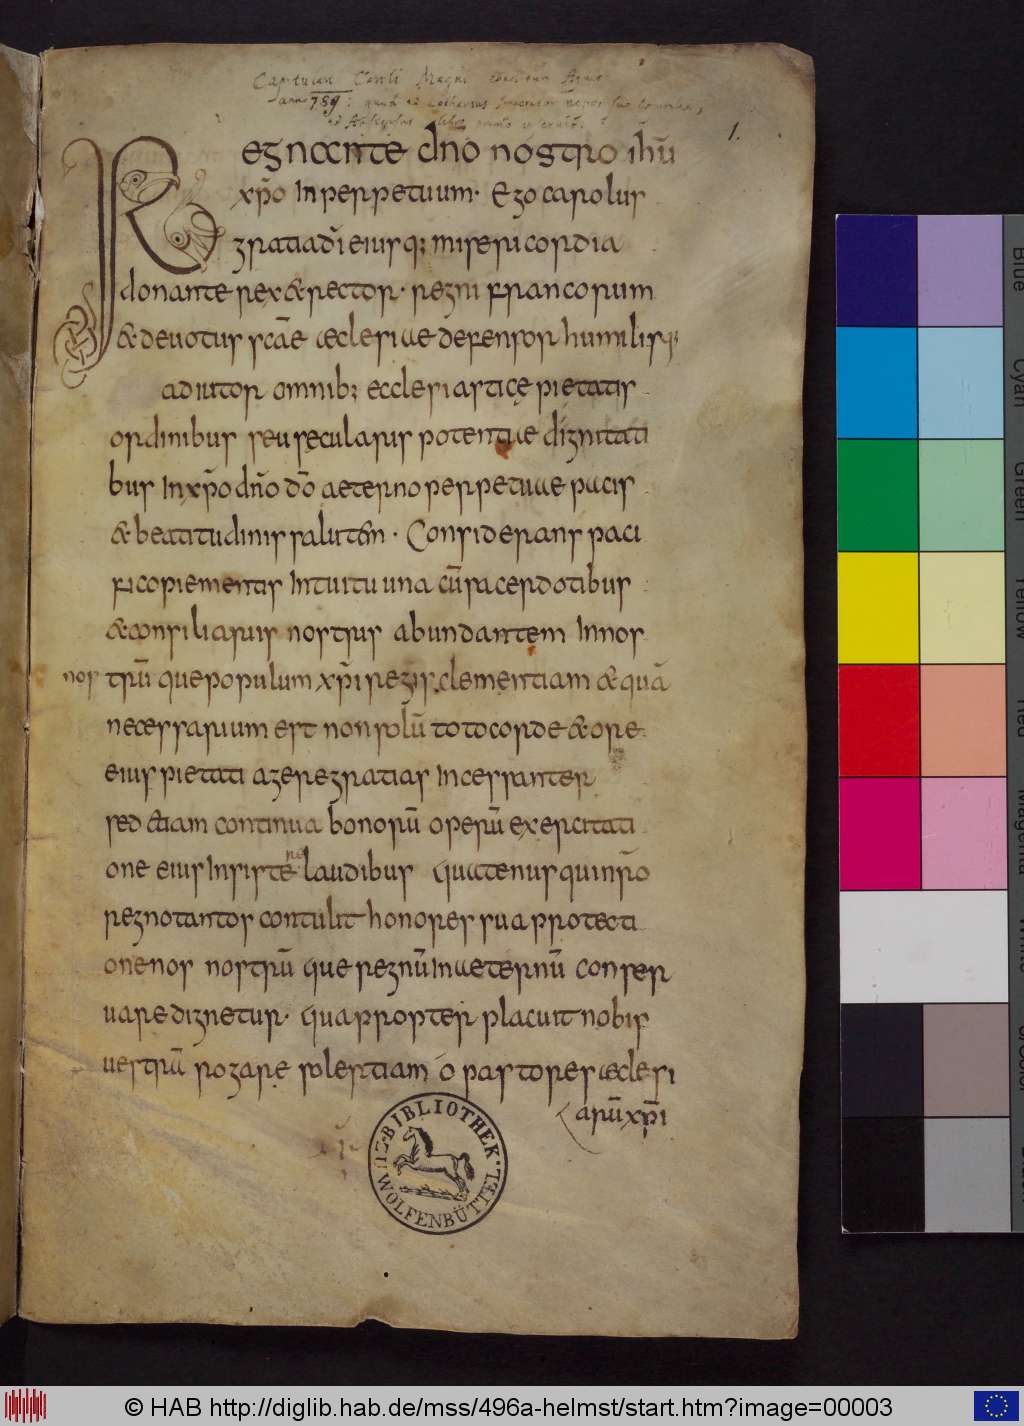 Capitulare Caroli Magni
anno 789:
1.
Regnante dño nostro ihũ
xp̃o In perpetuum· Ego carolus
gratia dĩ eiusq; misericordia
donante rex & rector· regni francorum
& deuotus scãe aeclesiae defensor humilisq;
adiutor omnib; ecclesiasticę pietatis
ordinibus seu sęcularis potentiae dignitati
bus In xp̃o dño dõ aeterno perpetuae pacis
& beatitudinis salutẽm· Considerans paci
fico pie mentis Intuitu una cũ sacerdotibus
& consiliariis nostris abundantem In nos
nos trũ que populum xp̃i regis clementiam & quã
necessarium est non solũ toto corde & ore
eius pietati agere gratias Incessanter
sed etiam continua bonorũ operũ exercitati
one eius Insistere laudibus quatenus qui nr̃o
regno tantos contulit honores sua protecti
one nos nostrũ que regnũ In aeternũ conser
uare dignetur· Qua propter placuit nobis
uestrã rogare solertiam ó pastores aeclesi
arũ xp̃i
BIBLIOTHEK
Z.U WOLFENBÜTTEL
Blue
Cyan
Green
Yellow
Red
Magenta
White
3/Color
© HAB http://diglib.hab.de/mss/496a-helmst/start.htm?image=00003